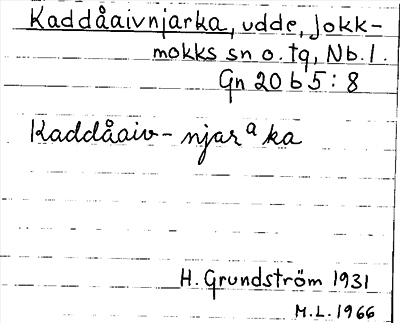 Kaddåaivnjarka, udde, Jokk-
mokks sn o. tg, Nb. l.
Gn 20 b 5 : 8
Kaddåaiv - njarᵃka
H. Grundström 1931
M.L. 1966